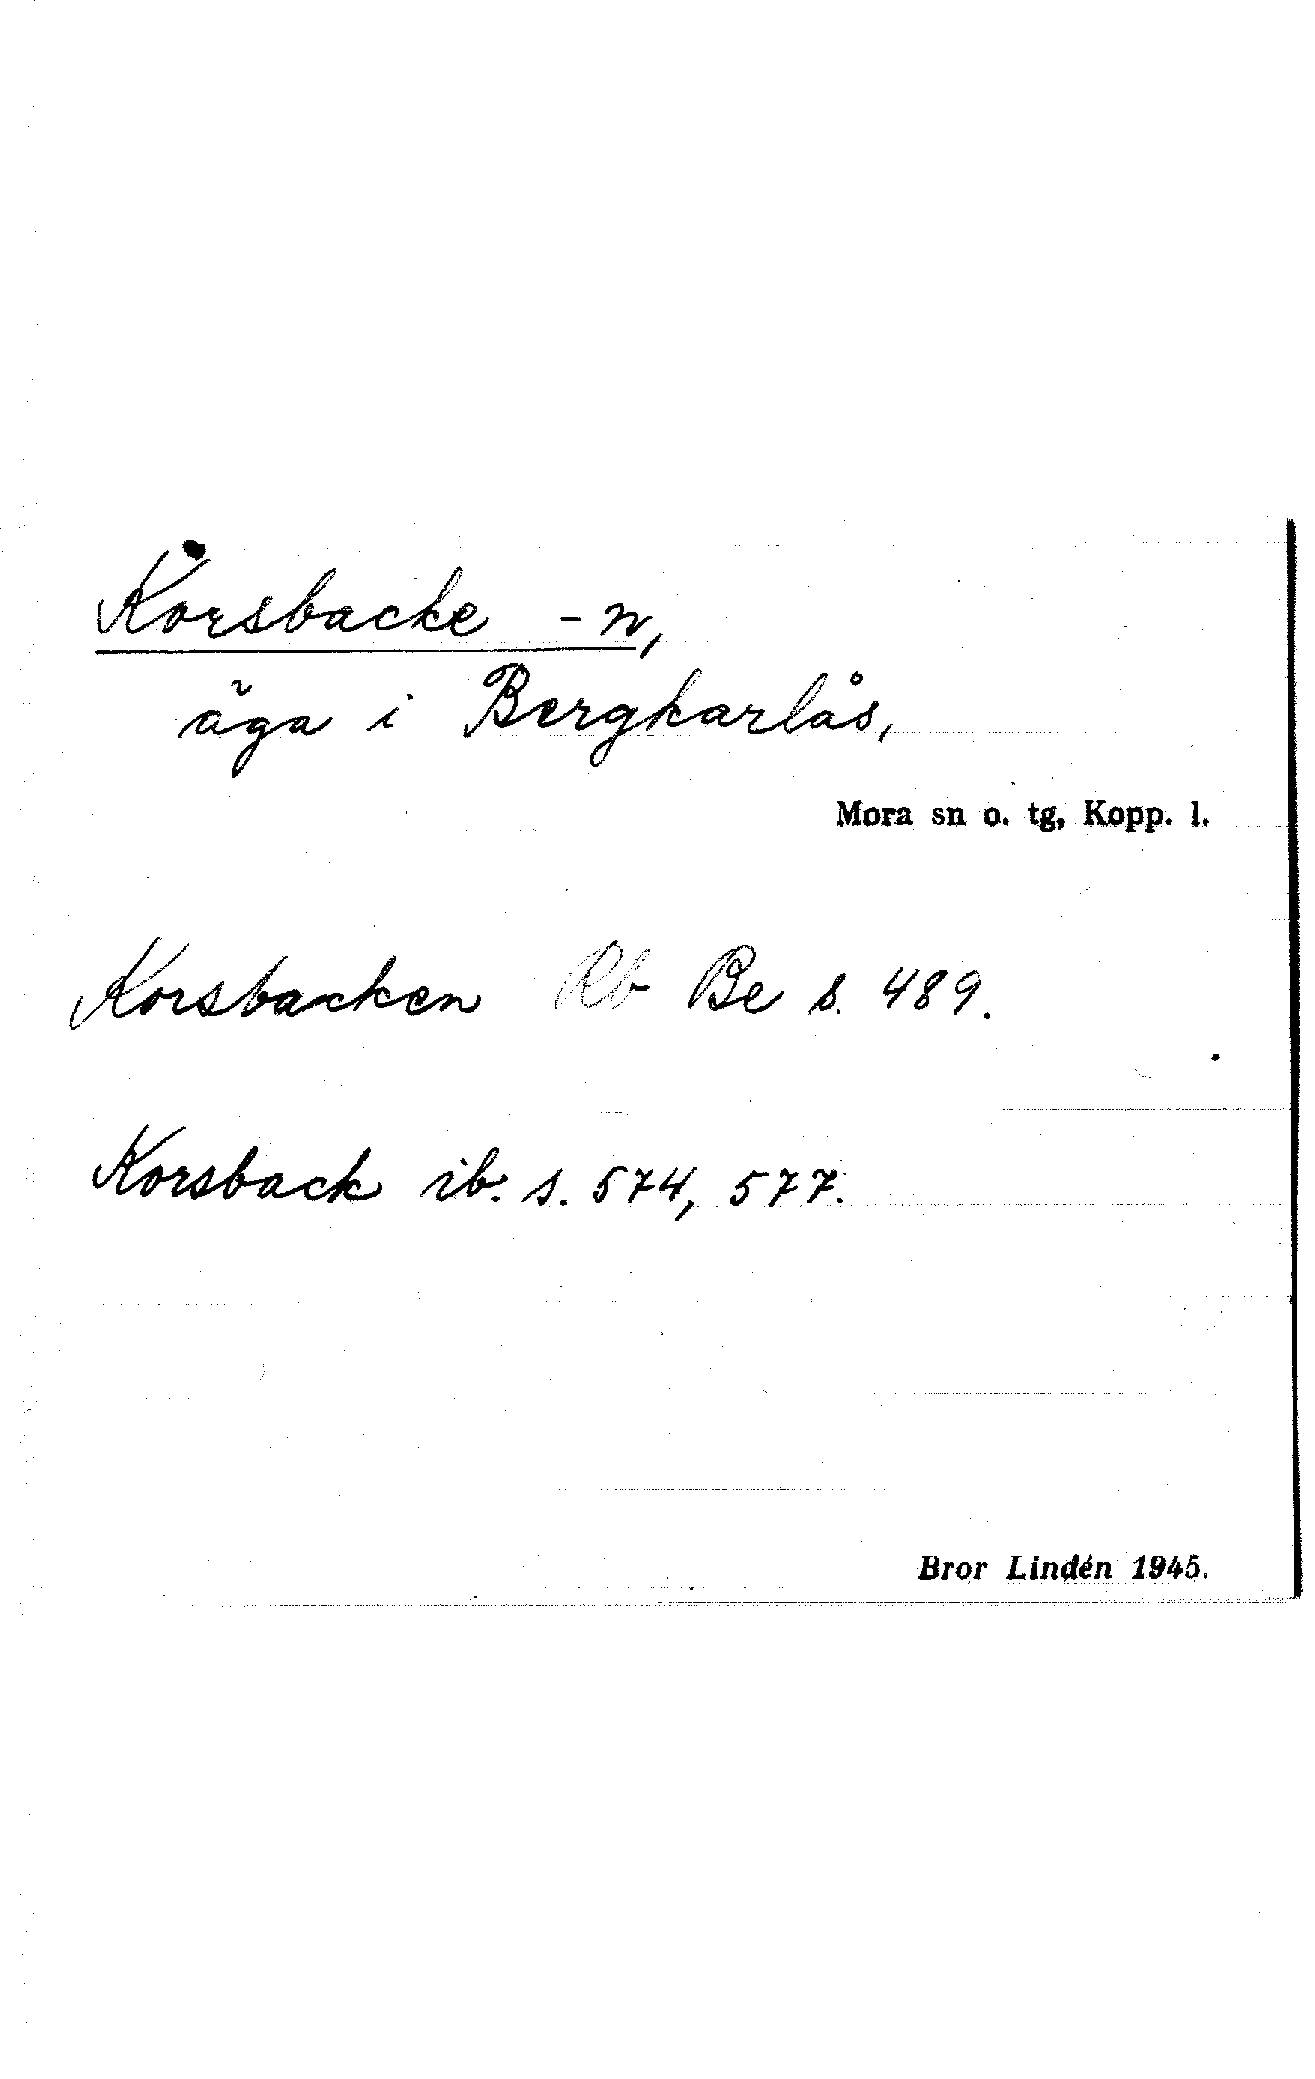 Korsbacke -n,
äga i Bergkarlås,
Mora sn o. tg, Kopp. l.
Korsbacken Rb Be s. 489.
Korsback ib. s. 574, 577.
Bror Lindén 1945.